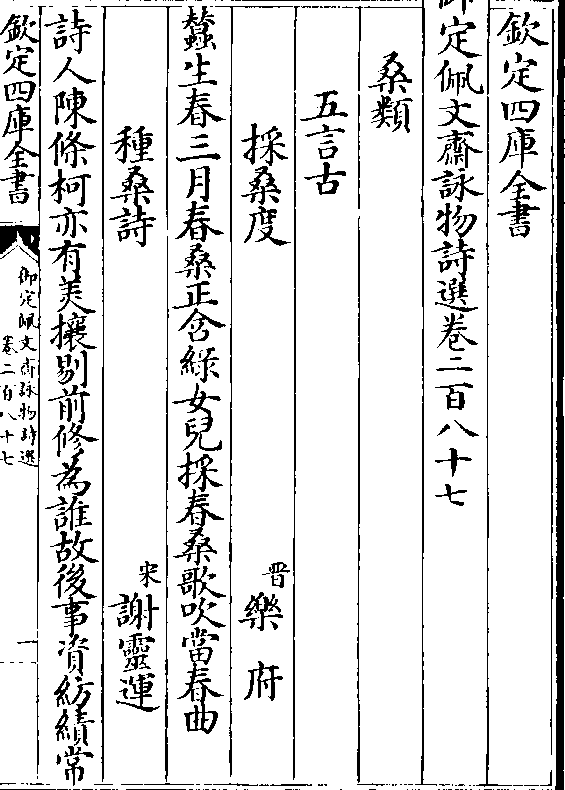 欽定四庫全書
御定佩文齋詠物詩選卷二百八十七
桑類
五言古
採桑度 晉樂府
蠶生春三月春桑正含綠女兒採春桑歌吹當春曲
種桑詩 宋謝靈運
詩人陳條柯亦有美攘剔前修為誰故後事資紡績常
欽定四庫全書
御定佩文齋詠物詩選
卷二百八十七
一